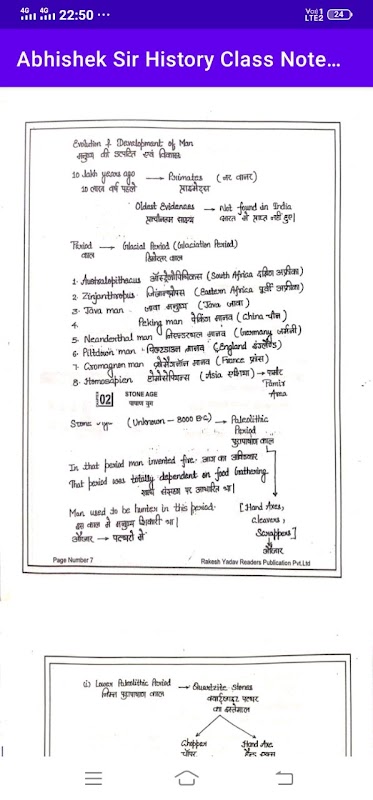 4G 4G 22:50 ···
Vo)) 1 LTE2 24
Abhishek Sir History Class Note...
Evolution & Development of Man
मनुष्य की उत्पत्ति एवं विकास
10 lakh years ago → Primates (नर वानर)
10 लाख वर्ष पहले प्राइमेट्स
Oldest Evidences → Not found in India
प्राचीनतम साक्ष्य भारत में प्राप्त नहीं हुए।
Period → Glacial Period (Glaciation Period)
काल हिमनद काल
1. Australopithecus (South Africa दक्षिण अफ्रीका)
2. Zinjanthropus (Eastern Africa पूर्वी अफ्रीका)
3. Java man - जावा मानव (Java जावा)
4. Peking man पेकिंग मानव (China चीन)
5. Neanderthal man मानव (Germany जर्मनी)
6. Piltdown man - पिल्टडाउन मानव (England इंग्लैंड)
7. Cromagnon man मानव (France फ्रांस)
8. Homosapien होमोसेपियन्स (Asia एशिया) → पामीर
Pamir
Area
02 STONE AGE
पाषाण युग
Stone age (Unknown - 8000 BC) → Paleolithic
Period
पुरापाषाण काल
In that period man invented fire. आग का आविष्कार
That period was totally dependent on food Gathering
खाद्य संग्रहण पर आधारित था।
Man used to be hunter in this period. [Hand Axes,
इस काल में मनुष्य शिकारी था। cleavers,
औजार → पत्थरों से Scrappers]
औजार
Page Number 7 Rakesh Yadav Readers Publication Pvt.Ltd
(i) Lower Paleolithic Period → Quartzite stones
निम्न पुरापाषाण काल क्वार्टजाइट पत्थर
का इस्तेमाल
Chopper Hand Axe
चॉपर हैण्ड एक्स